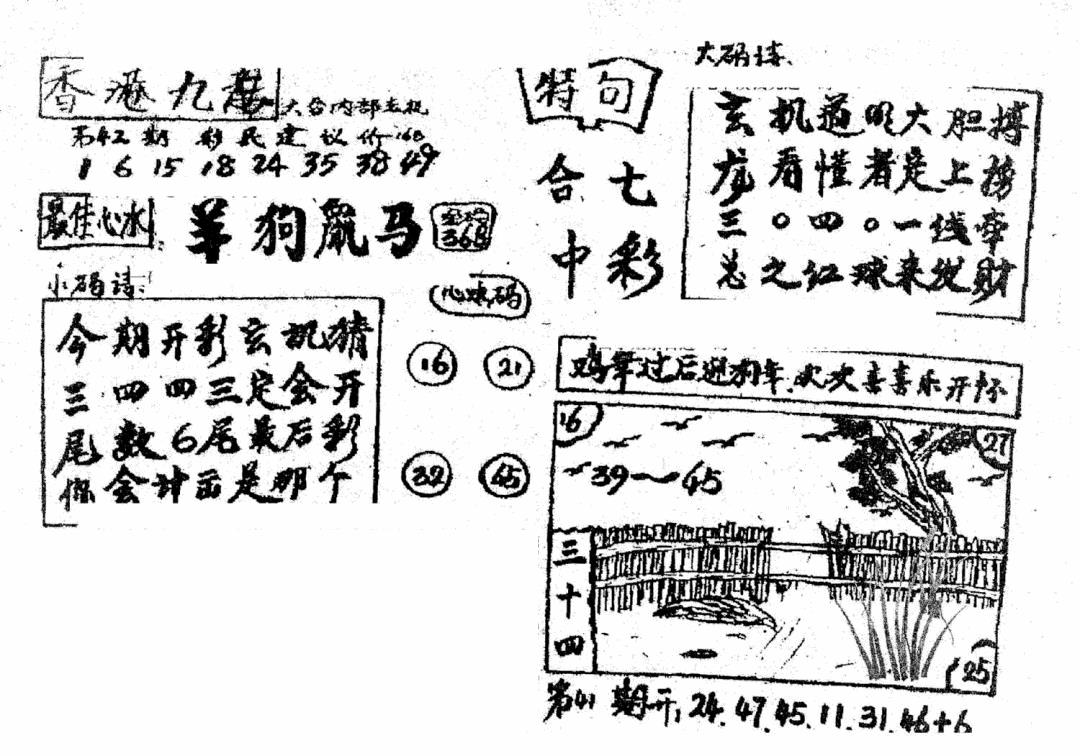 香港九龙
大台内部玄机
第42期 彩民建议价:168
1 6 15 18 24 35 38 49
最佳心水:
羊狗鼠马
368
小码诗:
今期开彩玄机猜
三四四三定会开
尾数6尾最后彩
你会冲击是那个
心水码
16 21
32 45
特句
合七
中彩
大码诗:
玄机道明大胆搏
龙看懂者定上榜
三〇四〇一线牵
总之红球来发财
鸡年过后迎狗年,欢欢喜喜乐开怀
16
27
39～45
三十四
25
第41期开:24.47.45.11.31.46+6